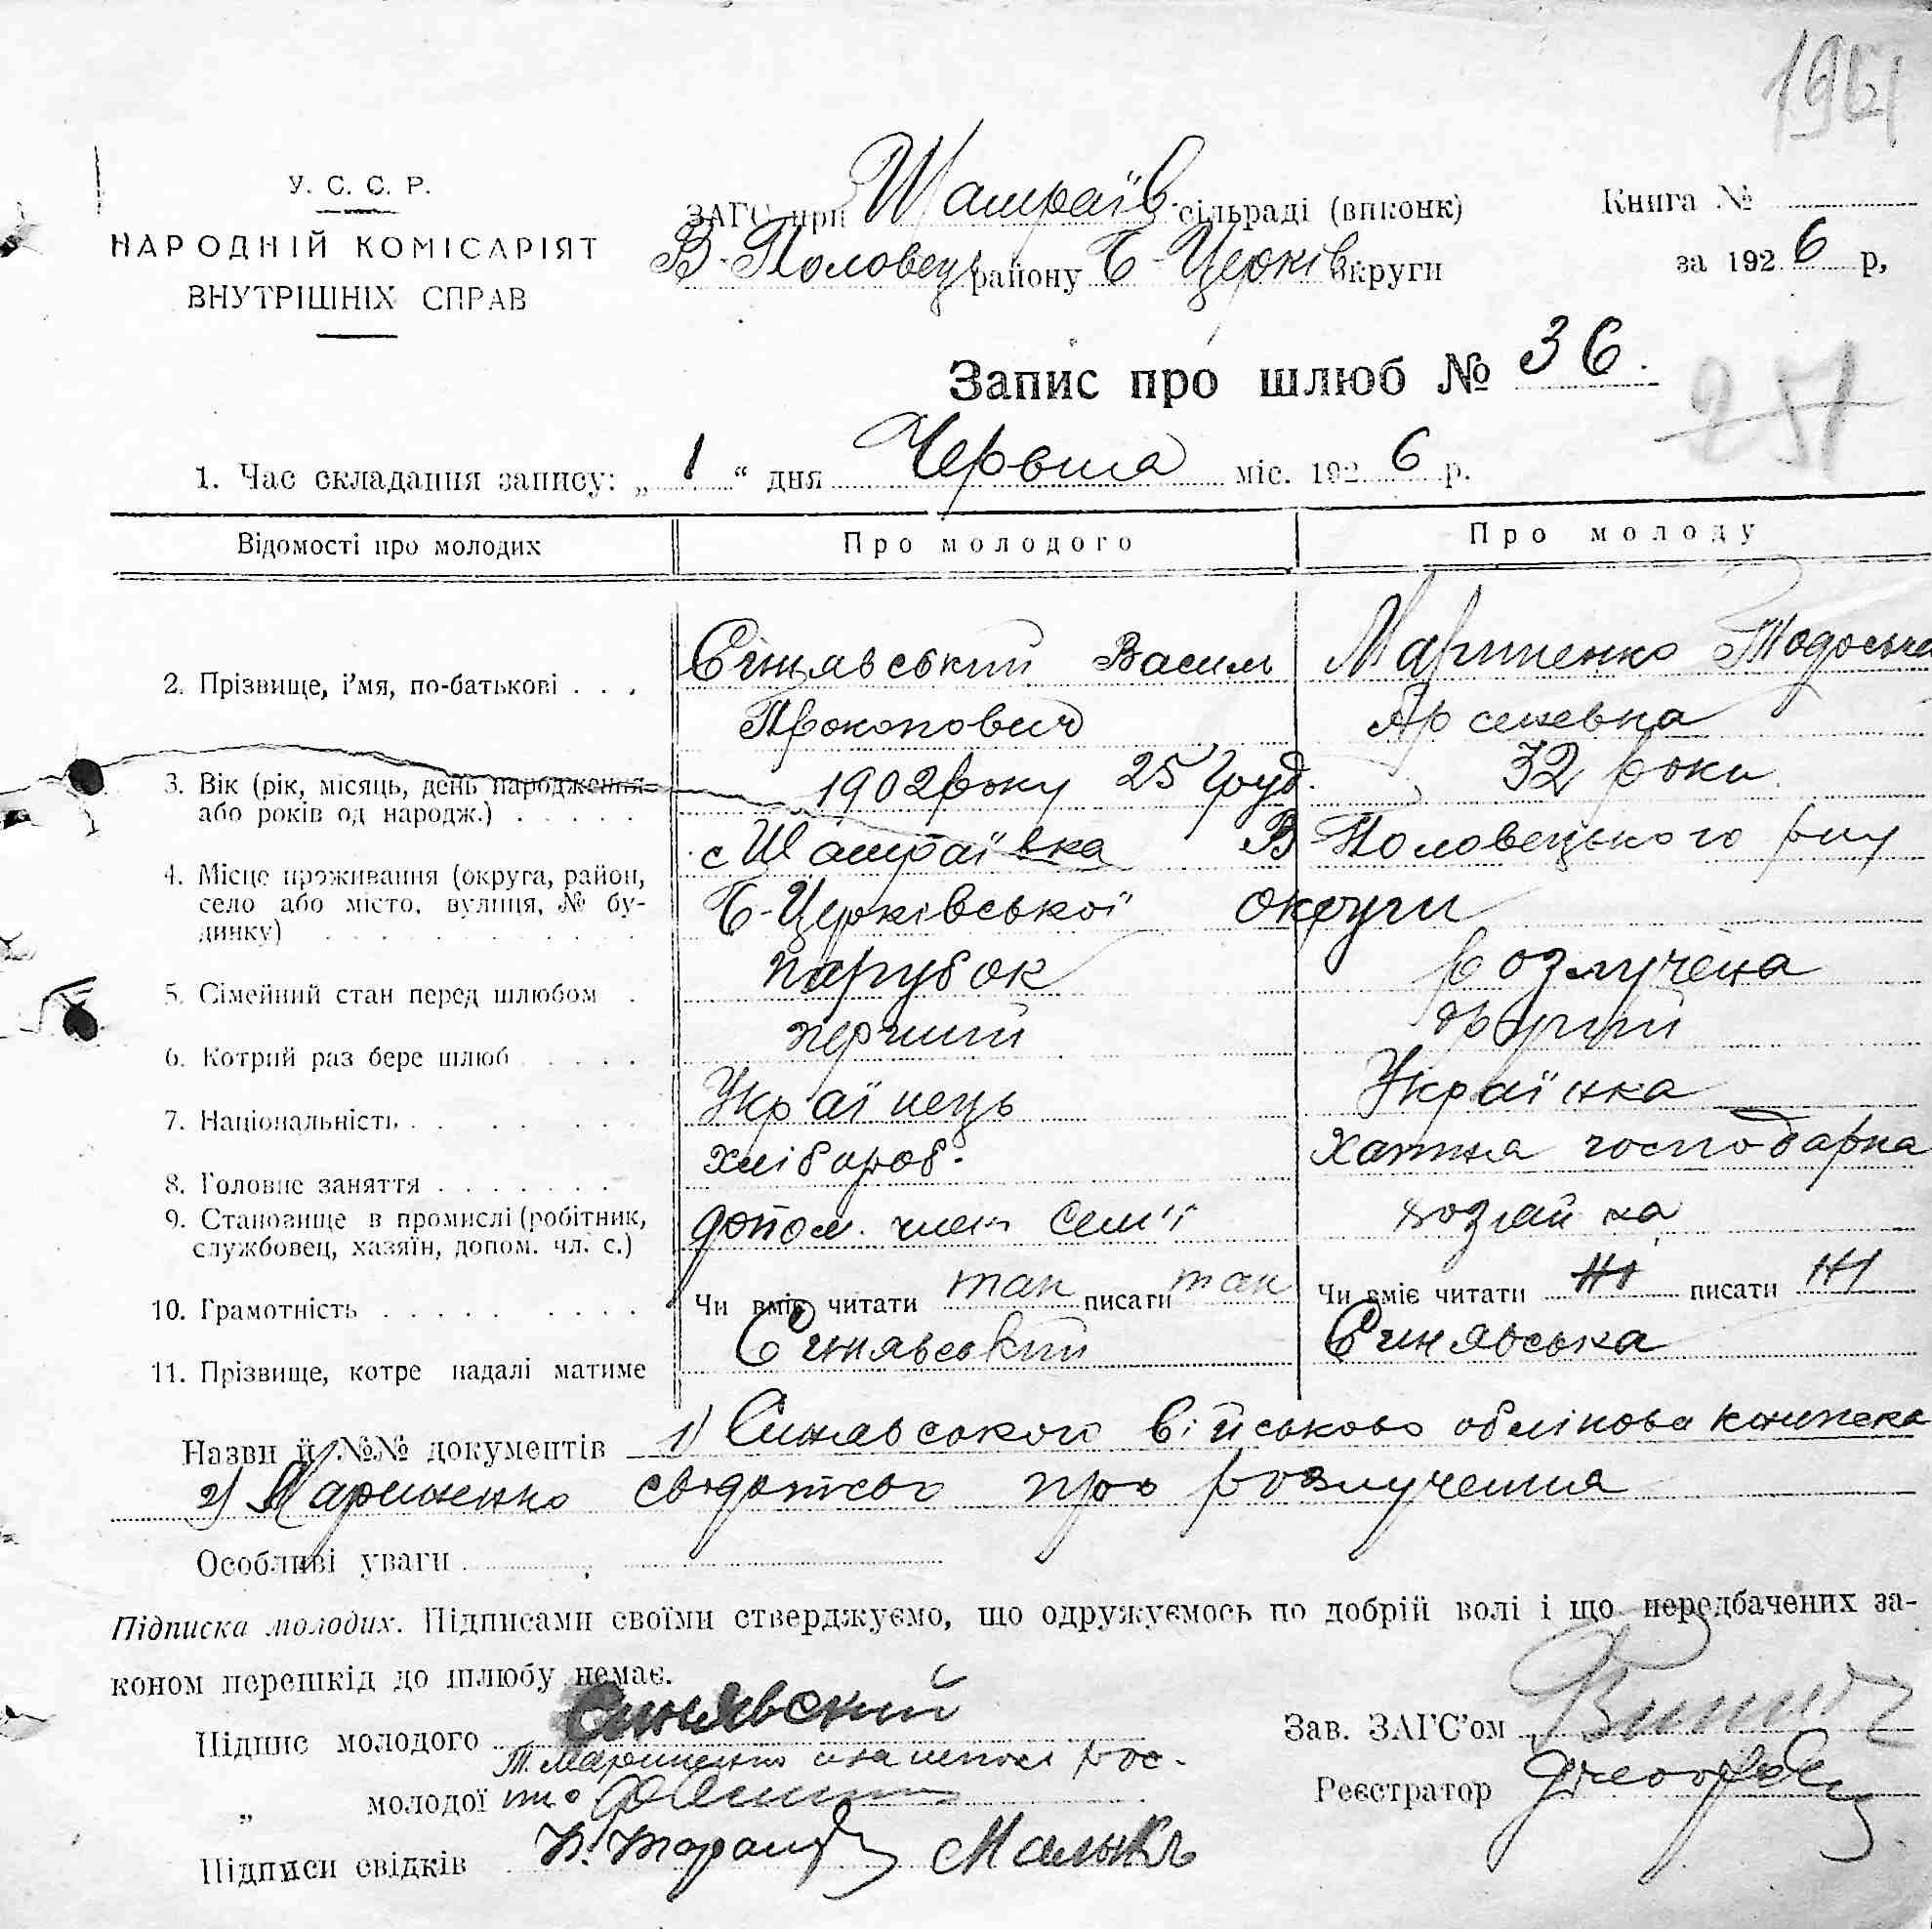 У. С. С. Р.
НАРОДНІЙ КОМІСАРІЯТ
ВНУТРІШНІХ СПРАВ
ЗАГС при Шамраїв. сільраді (виконк)
В-Половец району Б-Церків округи
Книга №
за 1926 р,
Запис про шлюб № 36.
251
1. Час складання запису: „1“ дня Червня міс. 1926 р.
Відомості про молодих
Про молодого
Про молоду
2. Прізвище, і'мя, по-батькові . . .
Сінявський Василь
Прокопович
Мариненко Тодоська
Арсеневна
3. Вік (рік, місяць, день народження
або років од народж.) . . . . .
1902 року 25 Груд.
32 роки
4. Місце проживання (округа, район,
село або місто, вулиця, № бу-
динку)
с Шамраївка В Половецького р-ну
Б-Церківської округи
5. Сімейний стан перед шлюбом .
парубок
розлучена
6. Котрий раз бере шлюб . . . . .
перший
другий
7. Національність . . . . . . .
Українець
Українка
8. Головне заняття . . . . . . .
хлібороб.
хатня господарка
9. Становище в промислі (робітник,
службовец, хазяїн, допом. чл. с.)
допом. член сем'ї
хозяйка
10. Грамотність . . . . . . . . .
Чи вміє читати так писати так
Чи вміє читати ні писати ні
11. Прізвище, котре надалі матиме
Синявський
Синявська
Назви й №№ документів 1) Синявського військово облікова книжека
2) Мариненко свідотство про розлучення
Особливі уваги
Підписка молодих. Підписами своїми стверджуємо, що одружуємось по добрій волі і що передбачених за-
коном перешкід до шлюбу немає.
Підпис молодого Синявский
Т. Мариненко
„ молодої
Підписи свідків
Зав. ЗАГС'ом
Реєстратор